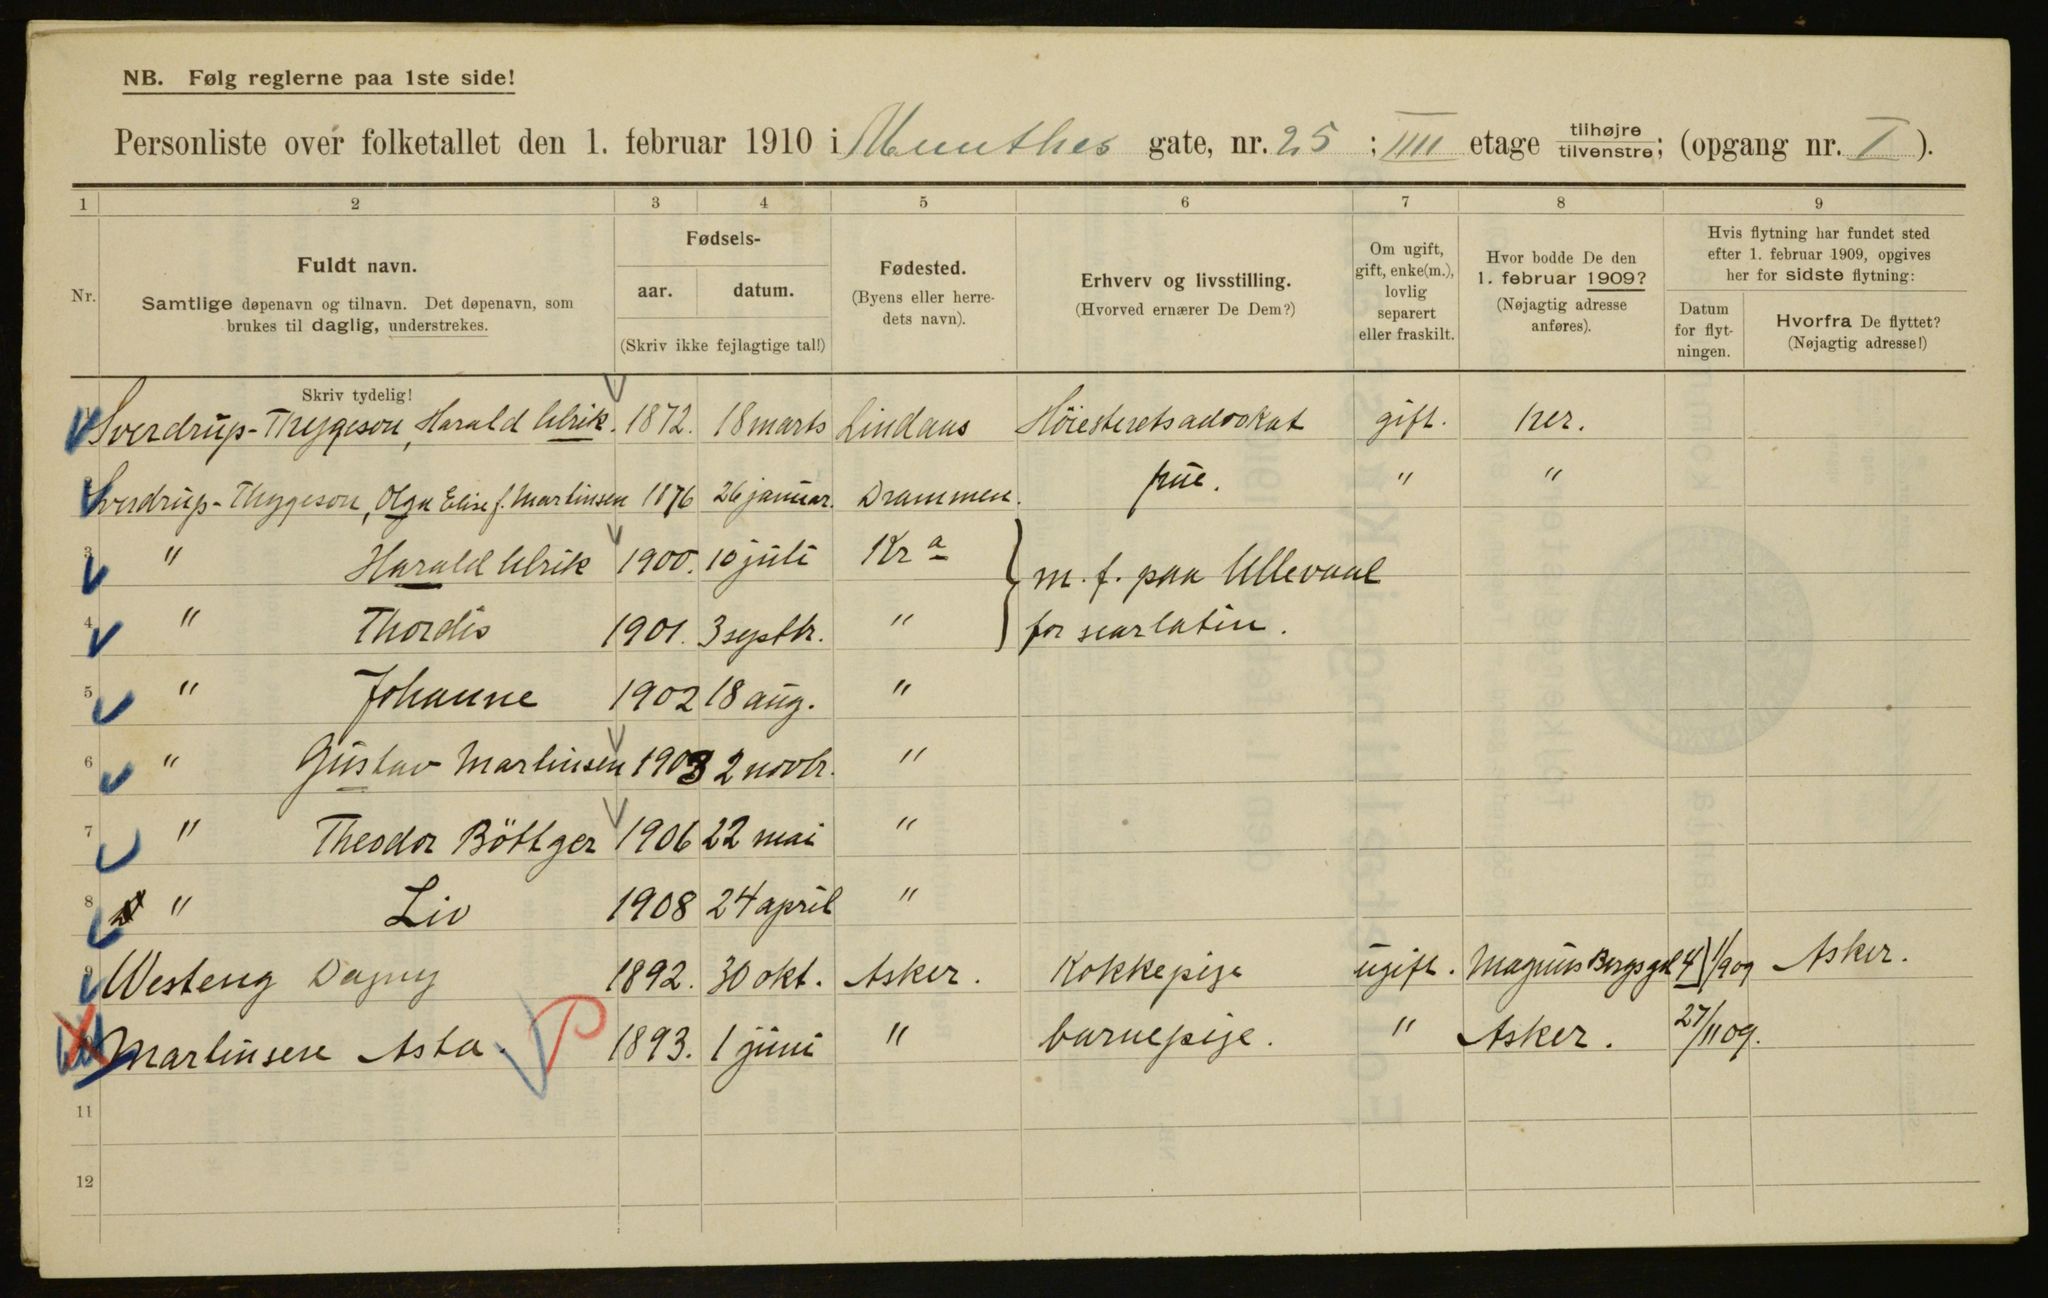 NB. Følg reglerne paa 1ste side!
Personliste over folketallet den 1. februar 1910 i Munthes gate, nr. 25 ; IIII etage tilhøjre tilvenstre; (opgang nr. I ).
1 2 3 4 5 6 7 8 9
Nr.
Fuldt navn.
Samtlige døpenavn og tilnavn. Det døpenavn, som
brukes til daglig, understrekes.
Fødsels-
aar. datum.
(Skriv ikke fejlagtige tal!)
Fødested.
(Byens eller herre-
dets navn).
Erhverv og livsstilling.
(Hvorved ernærer De Dem?)
Om ugift,
gift, enke(m.),
lovlig
separert
eller fraskilt.
Hvor bodde De den
1. februar 1909?
(Nøjagtig adresse
anføres).
Hvis flytning har fundet sted
efter 1. februar 1909, opgives
her for sidste flytning:
Datum
for flyt-
ningen.
Hvorfra De flyttet?
(Nøjagtig adresse!)
Skriv tydelig!
Sverdrup-Thygeson, Harald Ulrik. 1872. 18 marts Lindaas Höiesteretsadvokat gift. her.
Sverdrup-Thygeson, Olga Elise f. Martinsen 1876 26 januar. Drammen. frue. " "
3 " Harald Ulrik 1900. 10 juli Kra } m. f. paa Ullevaal
4 " Thordis 1901. 3 septbr. " for scarlatin.
5 " Johanne 1902 18 aug. "
6 " Gustav Martinsen 1903 2 novbr. "
7 " Theodor Böttger 1906 22 mai "
8 " Liv 1908 24 april "
9 Westeng Dagny 1892. 30 okt. Asker. Kokkepige ugift. Magnus Bergsgt 4 1/9 09 Asker.
Martinsen Asta. P 1893. 1 juni " barnepige. " Asker. 27/11 09.
11
12